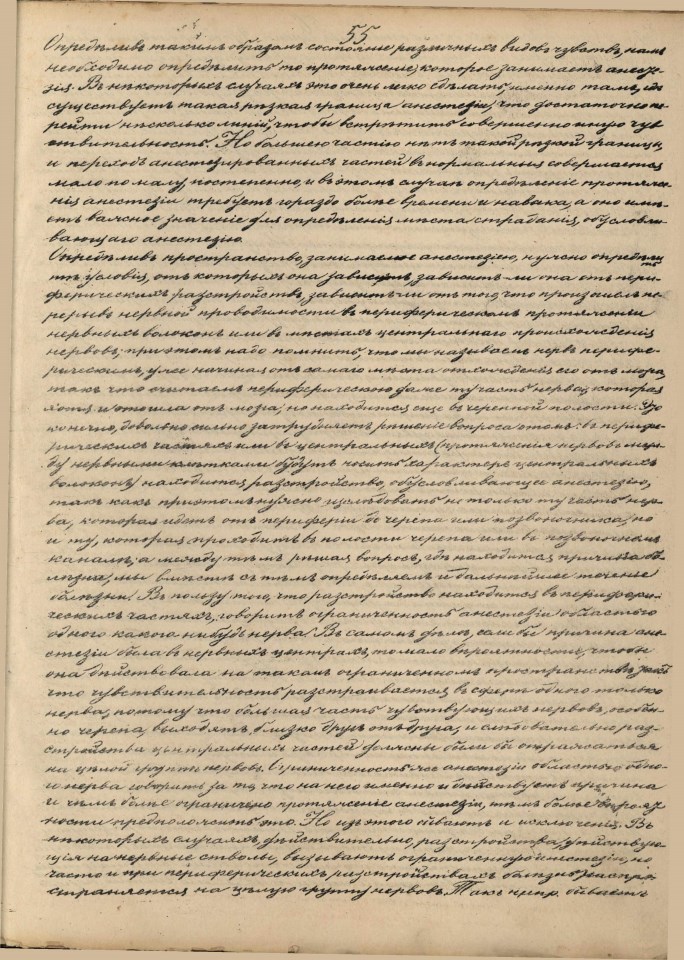 55
Опредѣливъ такимъ образомъ состояніе различныхъ видовъ чувствъ, намъ
необходимо опредѣлить то протяженіе, которое занимаетъ анесте-
зія. Въ нѣкоторыхъ случаяхъ это очень легко сдѣлать, именно тамъ, гдѣ
существуетъ такая рѣзкая граница анестезіи, что достаточно пе-
рейти нѣсколько линій, чтобы встрѣтить совершенно иную чув
ствительность. Но большею частію нѣтъ такой рѣзкой границы
и переходъ анестезированныхъ частей въ нормальныя совершается
мало по малу, постепенно, и въ этомъ случаѣ опредѣленіе протяже-
нія анестезіи требуетъ гораздо болѣе времени и навыка, а оно имѣ-
етъ важное значеніе для опредѣленія мѣста страданія, обусловли-
вающаго анестезію.
Опредѣливъ пространство, занимаемое анестезіею, нужно опредѣли
ть условія, отъ которыхъ она зависитъ, зависитъ-ли она отъ пери-
ферическихъ разстройствъ, зависитъ-ли отъ того, что произошелъ пе-
рерывъ нервной проводимости въ периферическомъ протяженіи
нервныхъ волоконъ или въ мѣстахъ центральнаго происхожденія
нервовъ; при этомъ надо помнить, что мы называемъ нервъ перифе-
рическимъ, уже начиная отъ самаго мѣста отхожденія его отъ мозга,
такъ что считаемъ периферическою даже ту часть нерва, которая
хотя и отошла отъ мозга, но находится еще въ черепной полости. Это
конечно, довольно сильно затрудняетъ рѣшеніе вопроса о томъ: въ перифе-
рическихъ частяхъ или въ центральныхъ (протяженія нервовъ меж-
ду нервными клѣтками будутъ носить характеръ центральныхъ
волоконъ) находится разстройство, обусловливающее анестезію,
такъ какъ при этомъ нужно изслѣдовать не только ту часть нер-
ва, которая идетъ отъ периферіи до черепа или позвоночника, но
и ту, которая проходитъ въ полости черепа или въ позвоночномъ
каналѣ; а между тѣмъ рѣшая вопросъ, гдѣ находится причина бо-
лѣзни, мы вмѣстѣ съ тѣмъ опредѣляемъ и дальнѣйшее теченіе
болѣзни. Въ пользу того, что разстройство находится въ перифери-
ческихъ частяхъ, говоритъ ограниченность анестезіи областью
одного какого нибудь нерва. Въ самомъ дѣлѣ, если бы причина ане-
стезіи была въ нервныхъ центрахъ, то мало вѣроятности, чтобы
она дѣйствовала на такомъ ограниченномъ пространствѣ,
что чувствительность разстраивается въ сферѣ одного только
нерва, потому что большая часть чувствующихъ нервовъ, особен-
но черепа, выходятъ близко другъ отъ друга, и слѣдовательно раз-
стройства центральныхъ частей должны были бы отражаться
на цѣлой группѣ нервовъ. Ограниченность же анестезіи областью одно-
го нерва говоритъ за то, что на него именно и дѣйствуетъ причина
и чѣмъ болѣе ограничено протяженіе анестезіи, тѣмъ болѣе вѣроят-
ности предположить это. Но изъ этого бываютъ и исключенія. Въ
нѣкоторыхъ случаяхъ, дѣйствительно, разстройства, дѣйствую-
щія на нервные стволы, вызываютъ ограниченную анестезію, но
часто и при периферическихъ разстройствахъ болѣзнь распро-
страняется на цѣлую группу нервовъ. Такъ напр. бываетъ